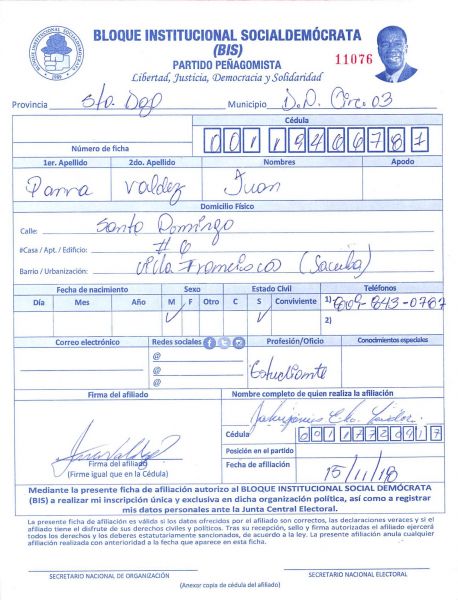 BLOQUE INSTITUCIONAL SOCIALDEMÓCRATA
(BIS)
PARTIDO PEÑAGOMISTA
11076
Libertad, Justicia, Democracia y Solidaridad
Provincia Sto. Dgo Municipio D.N. Circ 03
Cédula
Número de ficha 00119466787
1er. Apellido 2do. Apellido Nombres Apodo
Parra Valdez Juan
Domicilio Físico
Calle: Santo Domingo
#Casa / Apt. / Edificio: # 6
Barrio / Urbanización: Villa Francisca
Fecha de nacimiento Sexo Estado Civil Teléfonos
Día Mes Año M F Otro C S Conviviente 1) 809-843-0767
2)
Correo electrónico Redes sociales Profesión/Oficio Conocimientos especiales
@
@
@
Estudiante
Firma del afiliado Nombre completo de quien realiza la afiliación
Cédula
Posición en el partido
Firma del afiliado
(Firme igual que en la Cédula)
Fecha de afiliación 15/11/18
Mediante la presente ficha de afiliación autorizo al BLOQUE INSTITUCIONAL SOCIAL DEMÓCRATA
(BIS) a realizar mi inscripción única y exclusiva en dicha organización política, así como a registrar
mis datos personales ante la Junta Central Electoral.
La presente ficha de afiliación es válida si los datos ofrecidos por el afiliado son correctos, las declaraciones veraces y si el
afiliado tiene el disfrute de sus derechos civiles y políticos. Tras su recepción, sello y firma autorizadas el afiliado ejercerá
todos los derechos y los deberes estatutariamente sancionados, de acuerdo a la ley. La presente afiliación anula cualquier
afiliación realizada con anterioridad a la fecha que aparece en esta ficha.
SECRETARIO NACIONAL DE ORGANIZACIÓN SECRETARIO NACIONAL ELECTORAL
(Anexar copia de cédula del afiliado)